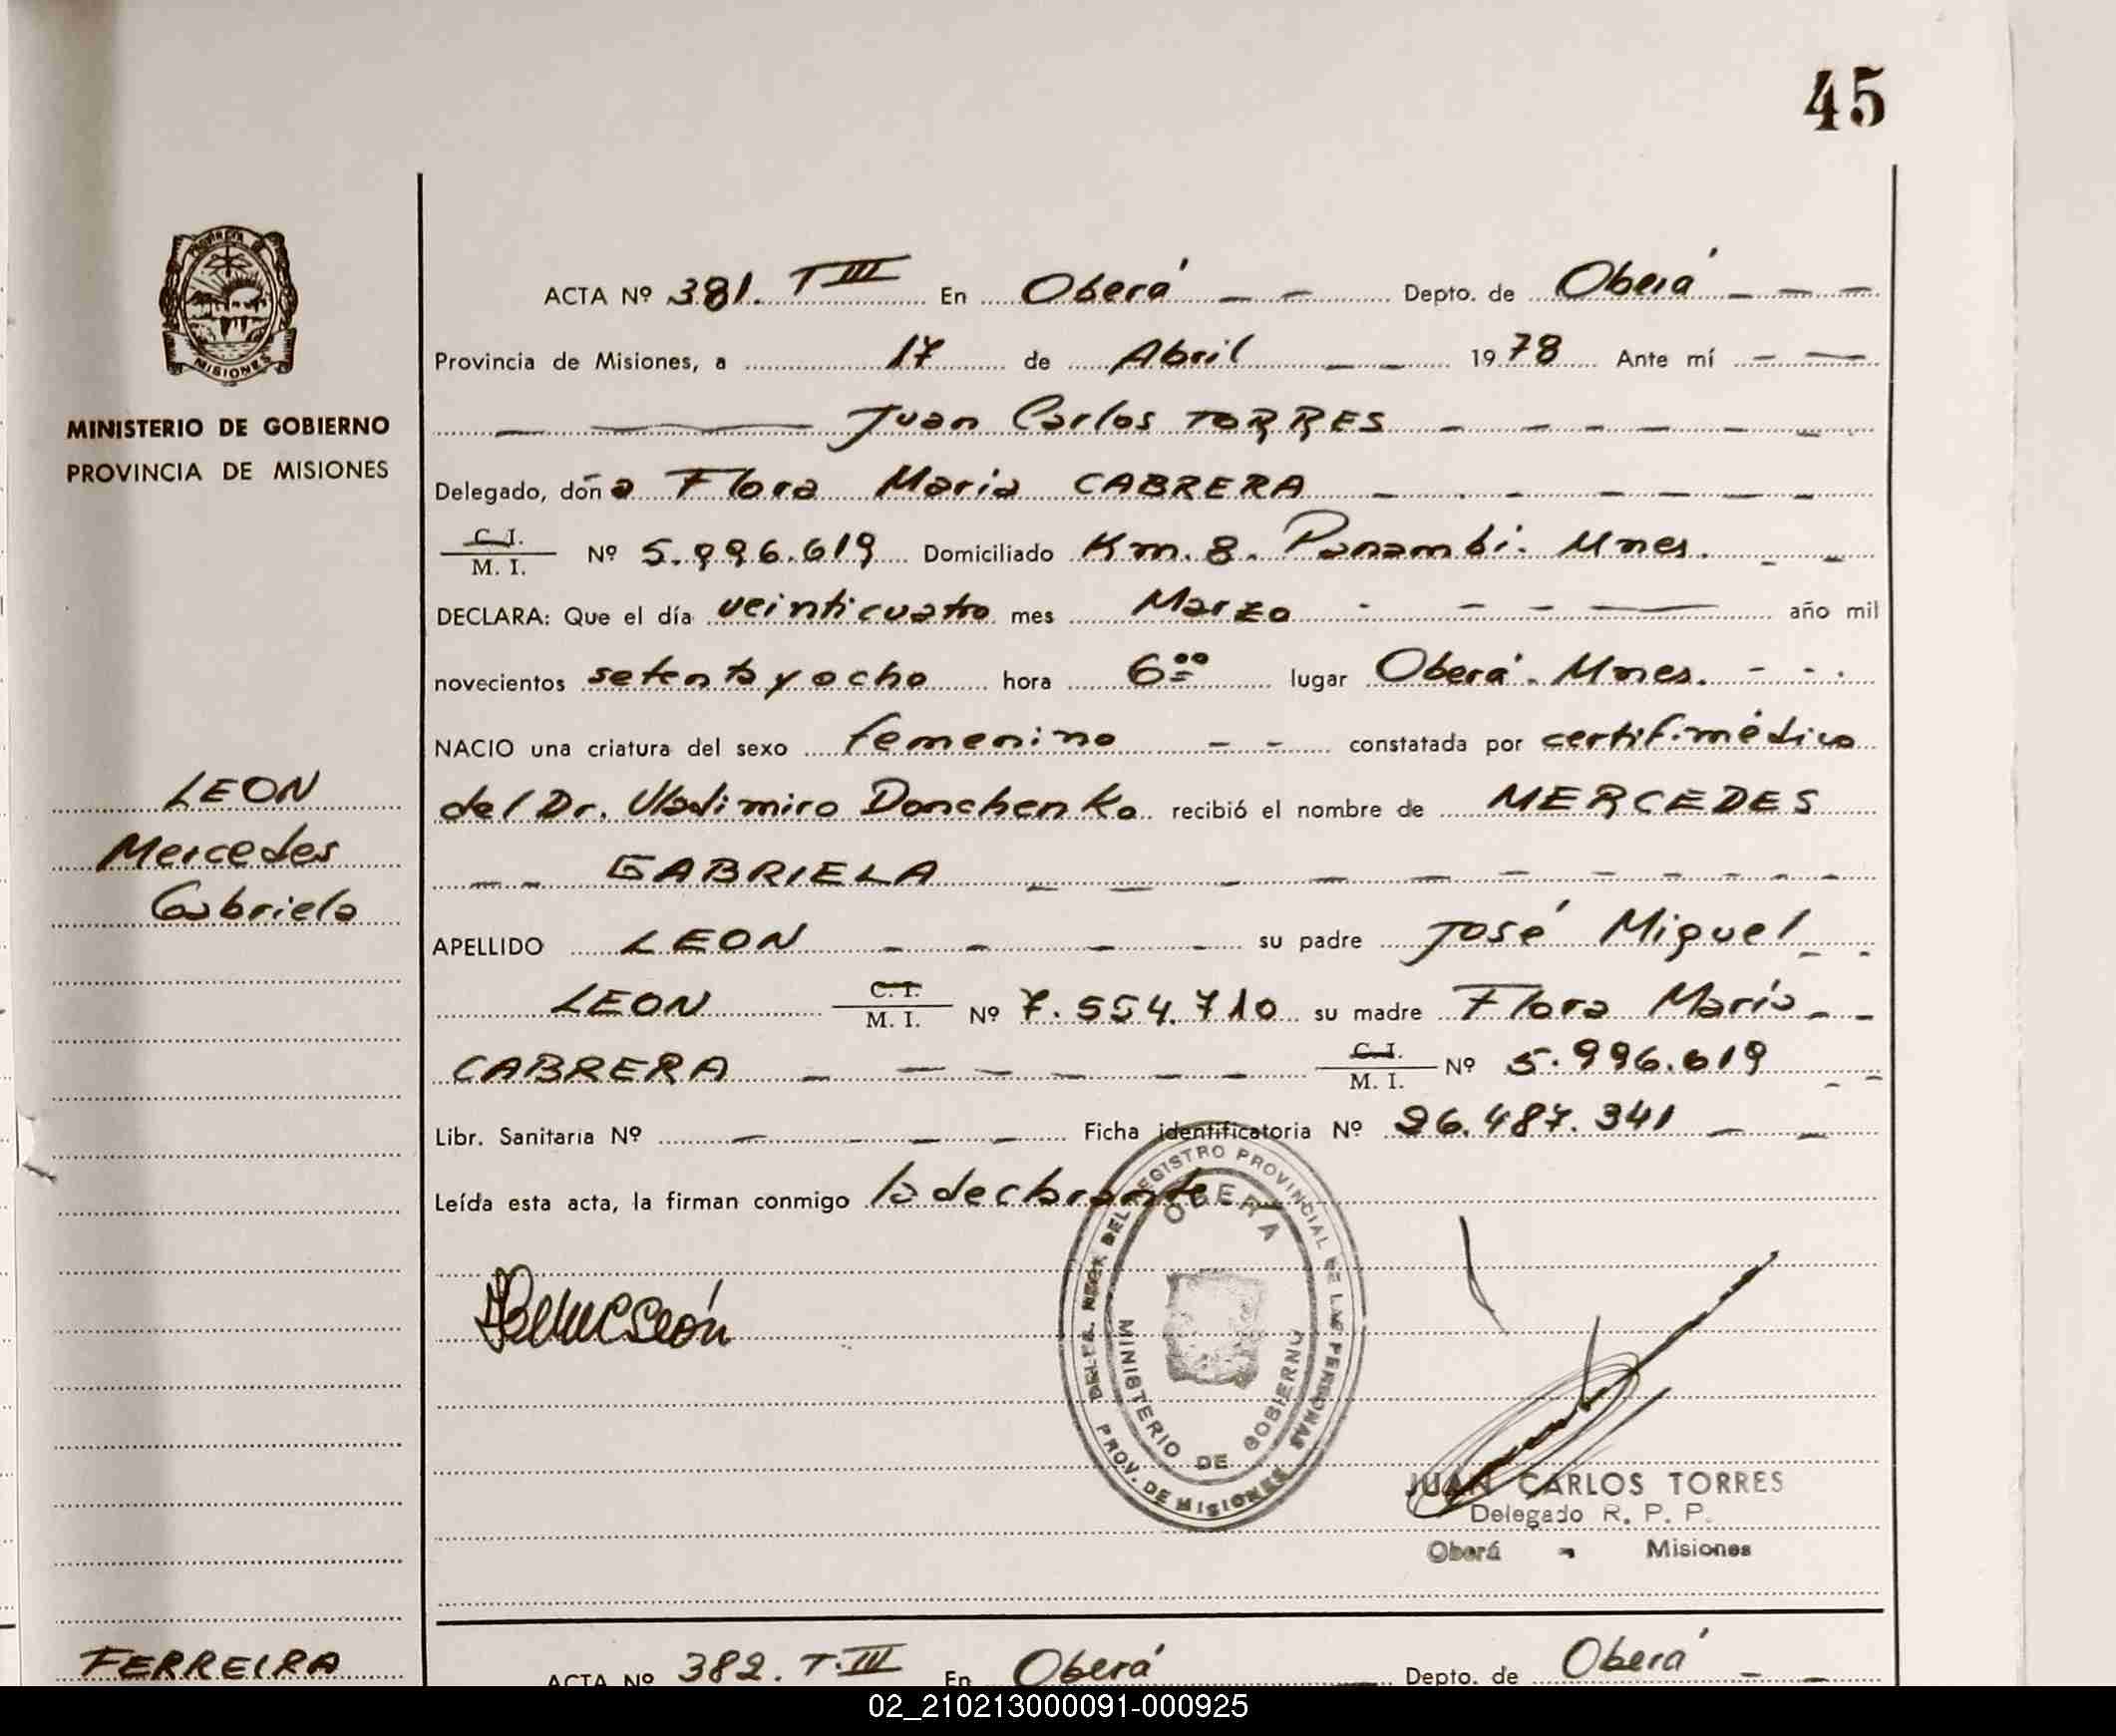 45
PROVINCIA DE
MISIONES
MINISTERIO DE GOBIERNO
PROVINCIA DE MISIONES
LEON
Mercedes
Gabriela
ACTA Nº 381. T III En Oberá Depto. de Oberá
Provincia de Misiones, a 17 de Abril 1978 Ante mí
Juan Carlos TORRES
Delegado, doña Flora Maria CABRERA
C. I.
M. I. Nº 5.996.619 Domiciliado Km. 8. Panambí. Mnes.
DECLARA: Que el día veinticuatro mes Marzo año mil
novecientos setenta y ocho hora 6 00 lugar Oberá. Mnes.
NACIO una criatura del sexo femenino constatada por certif. médico
del Dr. Vladimiro Donchenko recibió el nombre de MERCEDES
GABRIELA
APELLIDO LEON su padre José Miguel
LEON C. I. M. I. Nº 7.554.710 su madre Flora María
CABRERA C. I. M. I. Nº 5.996.619
Libr. Sanitaria Nº Ficha identificatoria Nº 26.487.341
Leída esta acta, la firman conmigo la declarante
DEL REGISTRO PROVINCIAL DE LAS PERSONAS
OBERA
MINISTERIO DE GOBIERNO
PROV. DE MISIONES
JUAN CARLOS TORRES
Delegado R. P. P.
Oberá - Misiones
FERREIRA
ACTA Nº 382. T. III En Oberá Depto. de Oberá
02_210213000091-000925